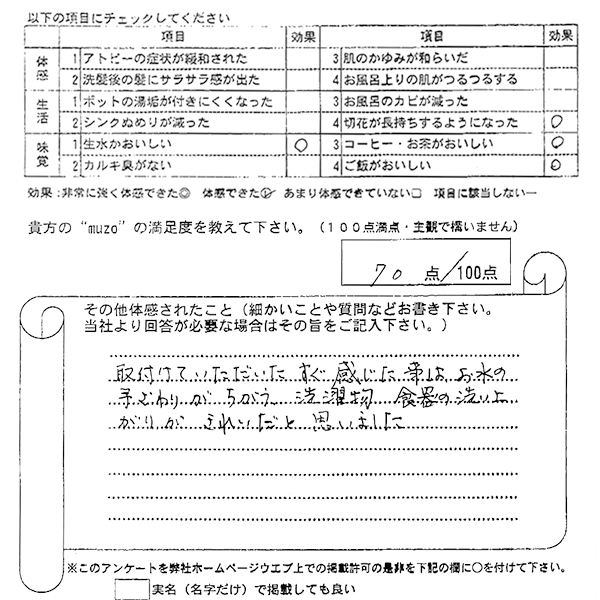 以下の項目にチェックしてください
項目 効果 項目 効果
体感 1 アトピーの症状が緩和された 3 肌のかゆみが和らいだ
2 洗髪後の髪にサラサラ感が出た 4 お風呂上りの肌がつるつるする
生活 1 ポットの湯垢が付きにくくなった 3 お風呂のカビが減った
2 シンクぬめりが減った 4 切花が長持ちするようになった ○
味覚 1 生水がおいしい ○ 3 コーヒー・お茶がおいしい ○
2 カルキ臭がない 4 ご飯がおいしい ○
効果：非常に強く体感できた◎ 体感できた○ あまり体感できていない□ 項目に該当しない―
貴方の“muzo”の満足度を教えて下さい。（100点満点・主観で構いません）
70 点／100点
その他体感されたこと（細かいことや質問などお書き下さい。
当社より回答が必要な場合はその旨をご記入下さい。）
取付けていただいた すぐ 感じた 事は お水の
手ざわりが ちがう。 洗濯物 食器の洗い上
がりが きれいだと 思いました
※このアンケートを弊社ホームページウエブ上での掲載許可の是非を下記の欄に○を付けて下さい。
実名（名字だけ）で掲載しても良い